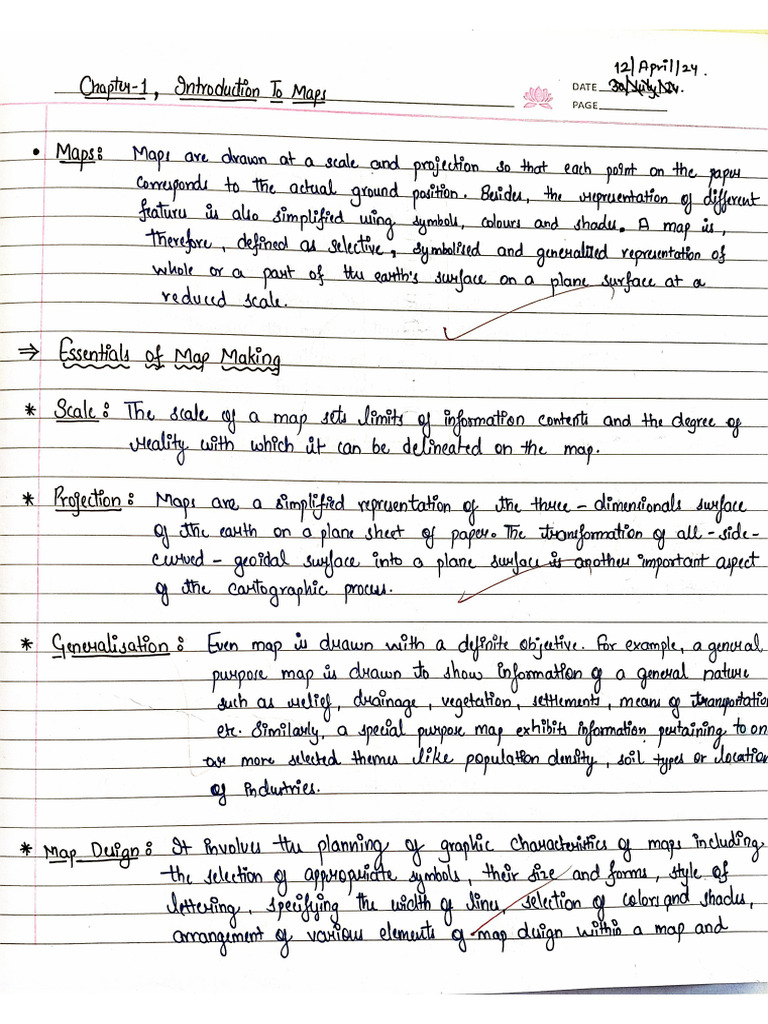 12/April/24.
Chapter-1, Introduction To Maps
DATE
PAGE
• Maps: Maps are drawn at a scale and projection so that each point on the paper
corresponds to the actual ground position. Besides, the representation of different
features is also simplified using symbols, colours and shades. A map is,
therefore, defined as selective, symbolised and generalized representation of
whole or a part of the earth's surface on a plane surface at a
reduced scale.
⇒ Essentials of Map Making
* Scale: The scale of a map sets limits of information contents and the degree of
reality with which it can be delineated on the map.
* Projection: Maps are a simplified representation of the three-dimensionals surface
of the earth on a plane sheet of paper. The transformation of all-side-
curved-geoidal surface into a plane surface is another important aspect
of the cartographic process.
* Generalisation: Even map is drawn with a definite objective. For example, a general
purpose map is drawn to show information of a general nature
such as relief, drainage, vegetation, settlements, means of transportation
etc. Similarly, a special purpose map exhibits information pertaining to on
are more selected themes like population density, soil types or location
of industries.
* Map Design: It involves the planning of graphic characteristics of maps including
the selection of appropriate symbols, their size and forms, style of
lettering, specifying the width of lines, selection of colors and shades,
arrangement of various elements of map design within a map and